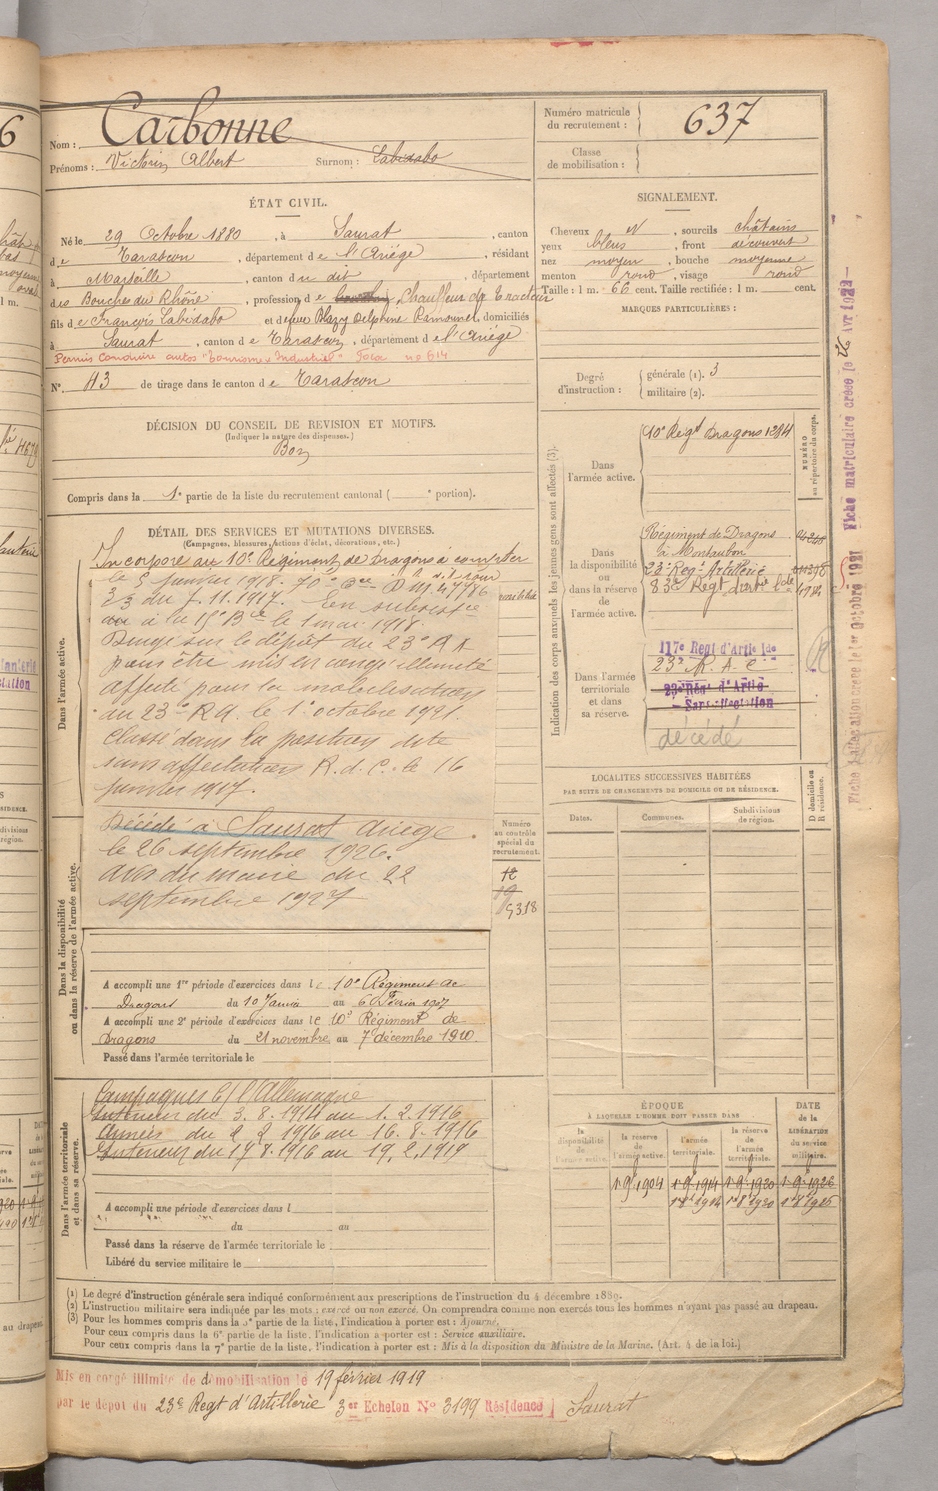 Nom : Carbonne
Prénoms : Victorin Albert Surnom : Labidabo
Numéro matricule du recrutement : 637
Classe de mobilisation :
ÉTAT CIVIL.
Né le 29 Octobre 1880, à Saurat, canton
de Tarascon, département de l'Ariége, résidant
à Marseille, canton du dit, département
des Bouches du Rhône, profession de Chauffeur de Tracteur
fils de François Labidabo et de feue Blazy Delphine, domiciliés
à Saurat, canton de Tarascon, département de l'Ariége
Permis Conduire autos "Tourisme & Industriel" no 614
N° 43 de tirage dans le canton de Tarascon
SIGNALEMENT.
Cheveux N, sourcils châtains
yeux bleus, front découvert
nez moyen, bouche moyenne
menton rond, visage rond
Taille : 1 m. 66 cent. Taille rectifiée : 1 m. cent.
MARQUES PARTICULIÈRES :
Degré d'instruction : générale (1). 3
militaire (2).
DÉCISION DU CONSEIL DE REVISION ET MOTIFS.
(Indiquer la nature des dispenses.)
Bon
Compris dans la 1e partie de la liste du recrutement cantonal ( e portion).
DÉTAIL DES SERVICES ET MUTATIONS DIVERSES.
(Campagnes, blessures, actions d'éclat, décorations, etc.)
Dans l'armée active.
Incorporé au 10e Régiment de Dragons à compter
le 5 janvier 1918.
du 7.11.1917. En subsistce
à le 15e Bie le 1 mai 1918.
Dirigé sur le dépôt du 23e RA
pour être mis en congé illimité
affecté pour la mobilisation
au 23e RA. le 1 octobre 1921.
Classé dans la position dite
sans affectation R.d.C. le 16
Décédé à Saurat Ariége.
le 26 septembre 1926.
avis du maire du 22
septembre 1927
Dans la disponibilité
ou dans la réserve de l'armée active.
Numéro
au contrôle
spécial du
recrutement.
12
19
5318
A accompli une 1re période d'exercices dans le 10e Régiment de
Dragons du 10 Janvier au 6 Février 1907
A accompli une 2e période d'exercices dans le 10e Régiment de
Dragons du 21 novembre au 7 décembre 1910.
Passé dans l'armée territoriale le
Dans l'armée territoriale
et dans sa réserve.
Campagnes C/ l'Allemagne
Intérieur du 3.8.1914 au 1.2.1916
Armées du 2 2 1916 au 16.8.1916
Intérieur du 17 8.1916 au 19.2.1919
A accompli une période d'exercices dans l
du au
Passé dans la réserve de l'armée territoriale le
Libéré du service militaire le
Indication des corps auxquels les jeunes gens sont affectés (3).
NUMÉRO
au répertoire du corps.
Dans l'armée active. 10e Regt Dragons 1284
Dans la disponibilité ou dans la réserve de l'armée active.
Régiment de Dragons
à Montauban
23e Regt Artillerie
83e Regt d'art. lde
Dans l'armée territoriale et dans sa réserve.
117e Regt d'Artie lde
23e R. A. C.
23e Rég d'Artie
Sans affectation
décédé
Fiche matriculaire créée le Avr 1922
LOCALITÉS SUCCESSIVES HABITÉES
PAR SUITE DE CHANGEMENTS DE DOMICILE OU DE RÉSIDENCE.
Dates. Communes. Subdivisions de région. D domicile ou R résidence.
ÉPOQUE
À LAQUELLE L'HOMME DOIT PASSER DANS
la disponibilité de l'armée active. la réserve de l'armée active. l'armée territoriale. la réserve de l'armée territoriale.
DATE de la LIBÉRATION du service militaire.
1 9 1904 1 9 1914 1 9 1920 1 9 1926
(1) Le degré d'instruction générale sera indiqué conformément aux prescriptions de l'instruction du 4 décembre 1889.
(2) L'instruction militaire sera indiquée par les mots : exercé ou non exercé. On comprendra comme non exercés tous les hommes n'ayant pas passé au drapeau.
(3) Pour les hommes compris dans la 5e partie de la liste, l'indication à porter est : Ajourné.
Pour ceux compris dans la 6e partie de la liste, l'indication à porter est : Service auxiliaire.
Pour ceux compris dans la 7e partie de la liste, l'indication à porter est : Mis à la disposition du Ministre de la Marine. (Art. 4 de la loi.)
Mis en congé illimité de démobilisation le 19 février 1919
par le dépôt du 23e Regt d'Artillerie 3er Echelon N° 3199 Résidence Saurat